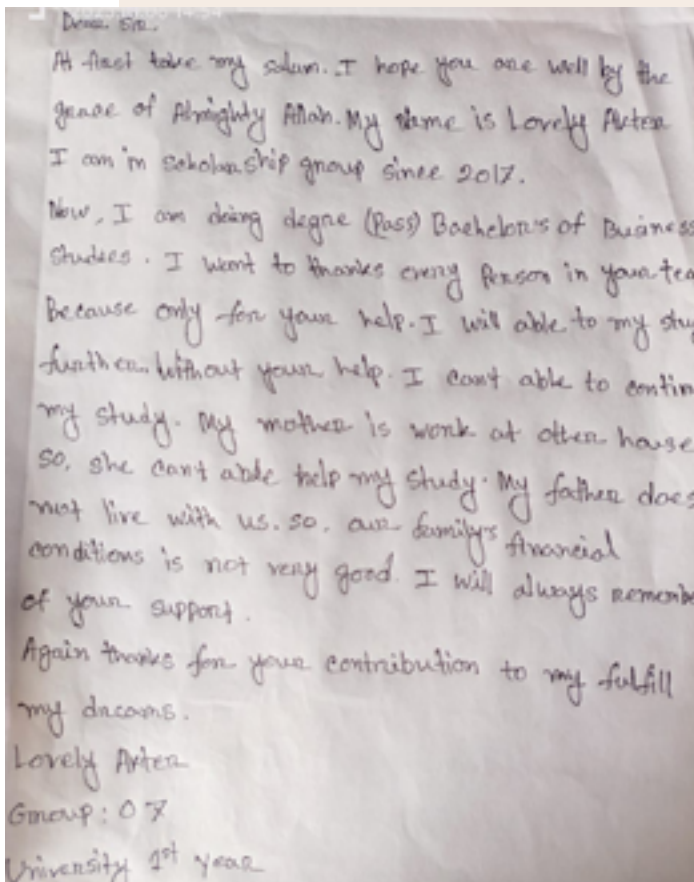 Dear Sir.
At first take my salam. I hope you are well by the
grace of Almighty Allah. My Name is Lovely Akter
I am in scholarship group since 2017.
Now, I am doing degre (Pass) Bachelor's of Business
Studies. I want to thanks every person in your tea
Because only for your help. I will able to my stu
further. Without your help. I can't able to contin
my study. My mother is work at other house
so, she can't able help my study. My father does
not live with us. so, our family's financial
conditions is not very good. I will always Remembe
of your support.
Again thanks for your contribution to my fulfill
my dreams.
Lovely Akter
Group: 07
University 1st year